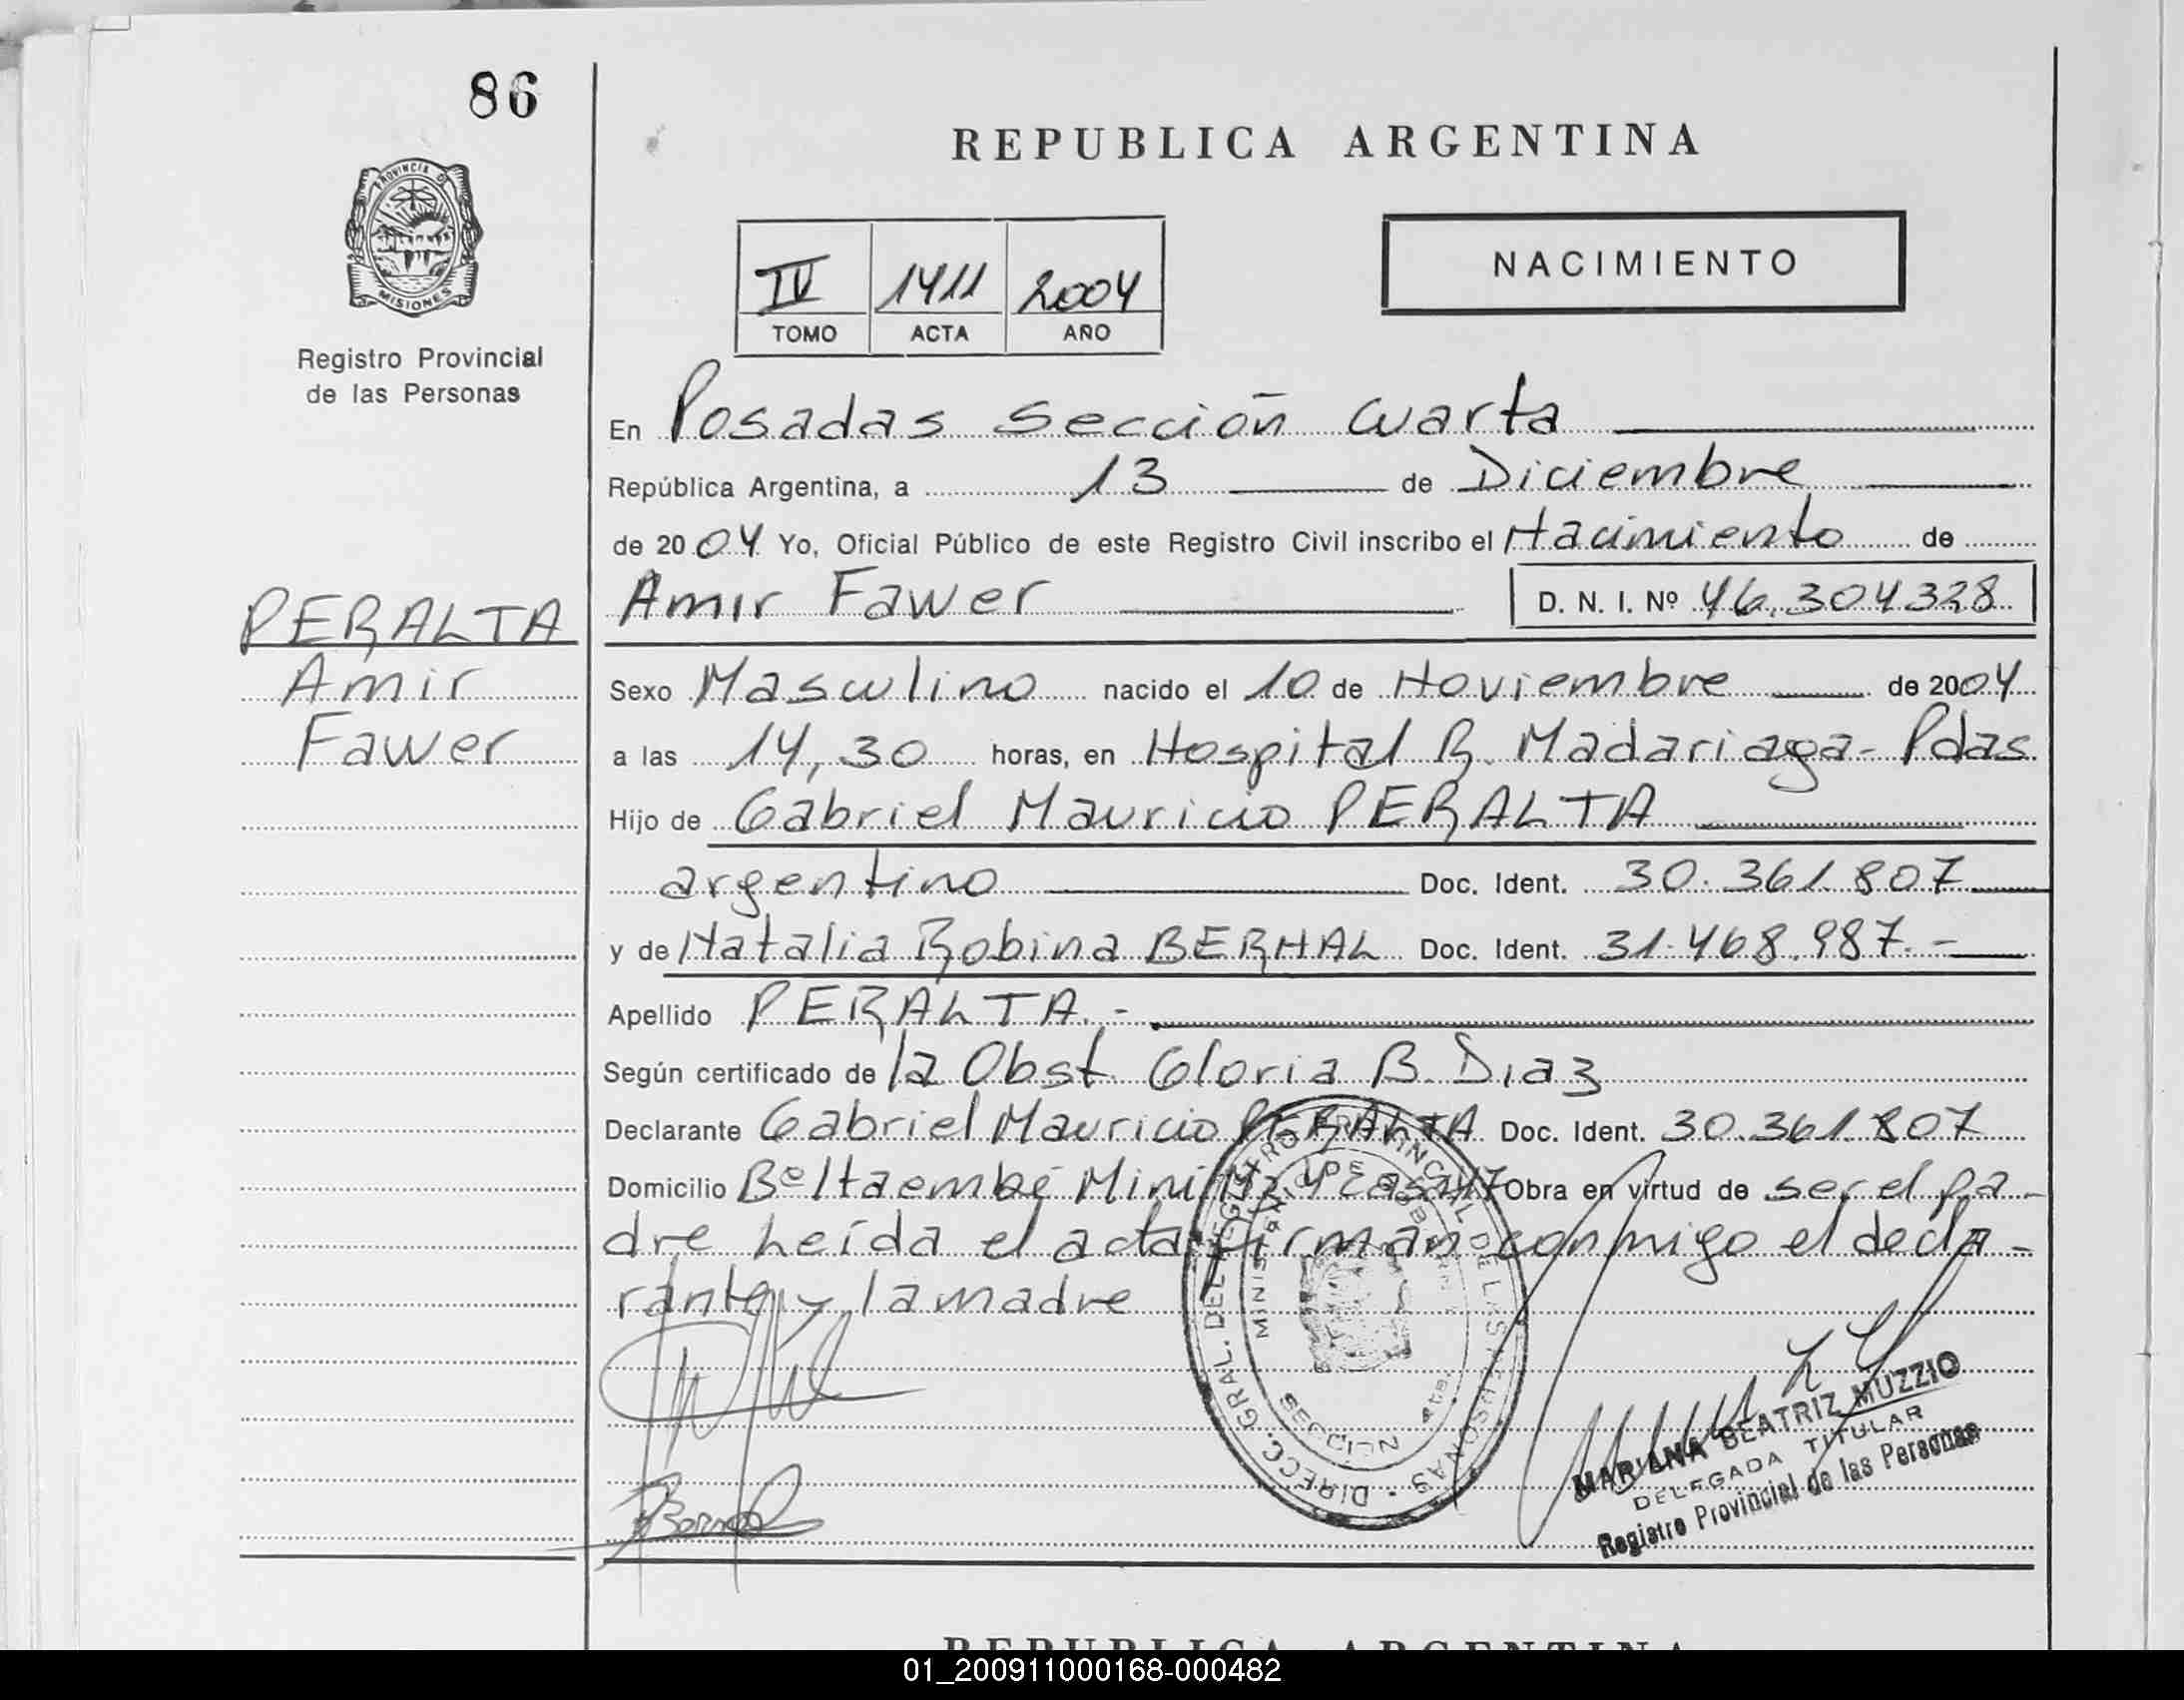 86
REPUBLICA ARGENTINA
PROVINCIA D
MISIONES
Registro Provincial
de las Personas
IV 1411 2004
TOMO ACTA AÑO
NACIMIENTO
En Posadas Sección Cuarta
República Argentina, a 13 de Diciembre
de 2004 Yo, Oficial Público de este Registro Civil inscribo el Nacimiento de
Amir Fawer D. N. I. Nº 46.304328
PERALTA
Amir
Fawer
Sexo Masculino nacido el 10 de Noviembre de 2004
a las 14,30 horas, en Hospital R. Madariaga - Pdas
Hijo de Gabriel Mauricio PERALTA
argentino Doc. Ident. 30.361.807
y de Natalia Robina BERNAL Doc. Ident. 31.468.987.-
Apellido PERALTA.-
Según certificado de la Obst. Gloria B. Diaz
Declarante Gabriel Mauricio PERALTA Doc. Ident. 30.361.807
Domicilio Beltaembé Mini Obra en virtud de ser el pa-
dre Leída el acta firman conmigo el decla-
rante y la madre
DIRECC. GRAL. DEL REGISTRO PROVINCIAL DE LAS PERSONAS
MARIANA BEATRIZ MUZZIO
DELEGADA TITULAR
Registro Provincial de las Personas
REPUBLICA ARGENTINA
01_200911000168-000482